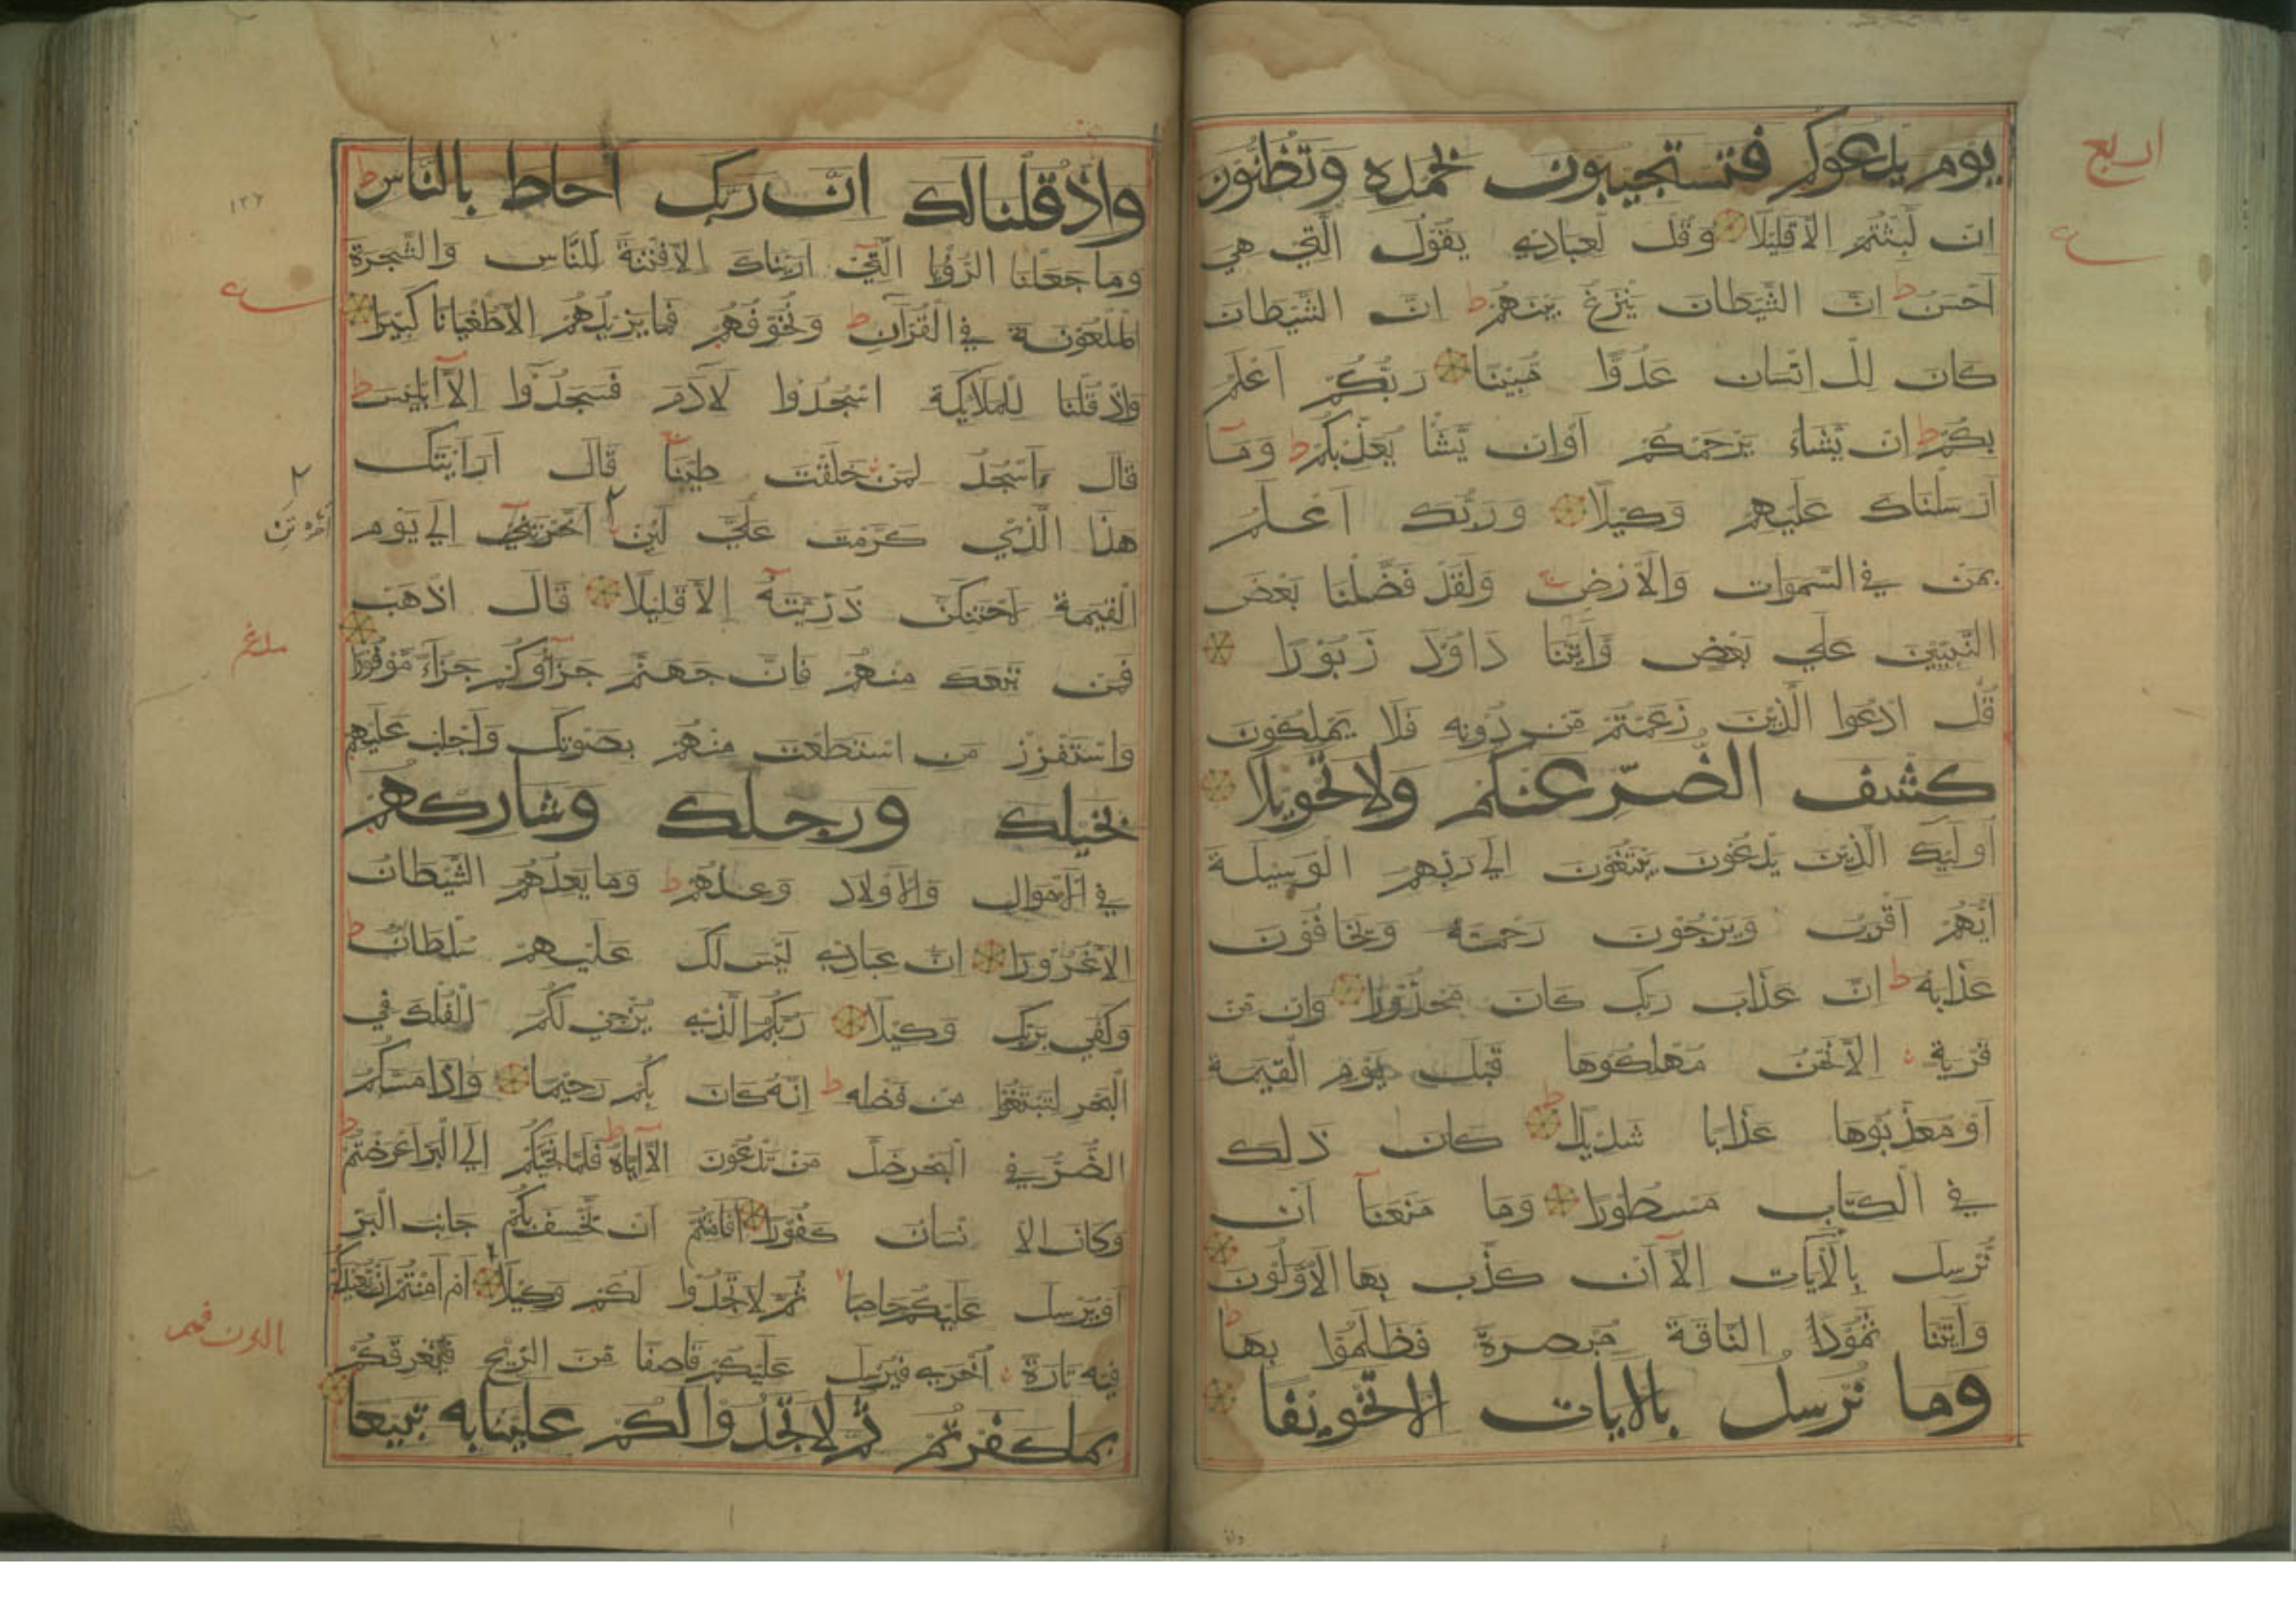 الربع
يوم يدعوكم فتستجيبون بحمده وتظنون
ان لبثتم الا قليلا وقل لعبادي يقول التي هي
احسن ط ان الشيطان ينزغ بينهم ط ان الشيطان
كان للانسان عدوا مبينا ربكم اعلم
بكم ط ان يشاء يرحمكم او ان يشا يعذبكم ط وما
ارسلناك عليهم وكيلا وربك اعلم
بمن في السموات والارض ط ولقد فضلنا بعض
النبيين علي بعض واتينا داود زبورا
قل ادعوا الذين زعمتم من دونه فلا يملكون
كشف الضر عنكم ولا تحويلا
اوليك الذين يدعون يبتغون الي ربهم الوسيلة
ايهم اقرب ويرجون رحمته ويخافون
عذابه ط ان عذاب ربك كان محذورا وان من
قرية الا نحن مهلكوها قبل يوم القيمة
او معذبوها عذابا شديدا ط كان ذلك
في الكتاب مسطورا وما منعنا ان
نرسل بالايات الا ان كذب بها الاولون
واتينا ثمودا الناقة مبصرة فظلموا بها ط
وما نرسل بالايات الا تخويفا
١٢٧
واذ قلنا لك ان ربك احاط بالناس ط
وما جعلنا الرؤيا التي اريناك الا فتنة للناس والشجرة
الملعونة في القران ط ونخوفهم فما يزيدهم الا طغيانا كبيرا
واذ قلنا للملايكة اسجدوا لادم فسجدوا الا ابليس ط
قال ءاسجد لمن خلقت طينا قال ارايتك
هذا الذي كرمت علي لين اخرتني الي يوم
القيمة لاحتنكن ذريته الا قليلا قال اذهب
فمن تبعك منهم فان جهنم جزاوكم جزاء موفورا
واستفزز من استطعت منهم بصوتك واجلب عليهم
بخيلك ورجلك وشاركهم
في الاموال والاولاد وعدهم ط وما يعدهم الشيطان
الا غرورا ان عبادي ليس لك عليهم سلطان ط
وكفي بربك وكيلا ربكم الذي يزجي لكم الفلك في
البحر لتبتغوا من فضله ط انه كان بكم رحيما واذا مسكم
الضر في البحر ضل من تدعون الا اياه ط فلما نجيكم الي البر اعرضتم ط
وكان الانسان كفورا افامنتم ان نخسف بكم جانب البر
او يرسل عليكم حاصبا ثم لا تجدوا لكم وكيلا ام امنتم ان نعيدكم
فيه تارة اخري فيرسل عليكم قاصفا من الريح فيغرقكم
بما كفرتم ثم لا تجدوا لكم علينا به تبيعا